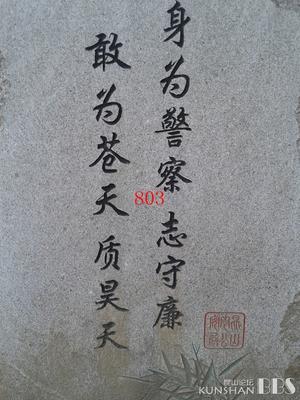 身为警察志守廉
敢为苍天质昊天
803
昆山论坛
KUNSHAN BBS